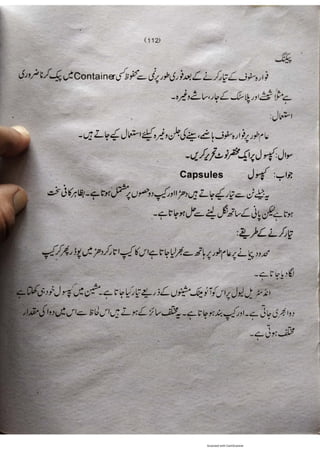 (112)
پیکنگ
فوارہ سفوف کے تیار کرنے کے بعد فوری طور پر نمی سے محفوظ کسی Container میں پیک کرنا ضروری
ہے مثلاً شیشے اور پلاسٹک کے جار، ساشے وغیرہ۔
استعمال:
عام طور پر فوارہ سفوف ہاضمے، سینے کی جلن وغیرہ کیلئے استعمال کیے جاتے ہیں۔
سوال: کیپسول پر ایک مختصر نوٹ تحریر کریں۔
جواب: کیپسول Capsules
یہ جیلے ٹن سے تیار کیے جاتے ہیں دھڑ اور کیپ دو حصوں پر مشتمل ہوتا ہے۔ بظاہر کافی سخت
ہوتا ہے لیکن پانی کے ساتھ نگل لینے سے حل ہو جاتا ہے۔
تیار کرنے کے طریقے:
محدود پیمانے پر عام طور پر ہاتھ سے بھرا لیا جاتا ہے اس کا کیپ اتار کر دھڑ میں پوڈر بھر کر کیپ
لگا دیا جاتا ہے۔
انڈسٹریل لیول پر اس کو آٹومیٹک مشینوں کے ذریعے تیار کیا جاتا ہے۔ مشین میں کیپسول خود ہی کھلتا ہے
دوا بھری جاتی ہے۔ اور کیپ بند ہو جاتا ہے۔ یہ مختلف سائز کے ہوتے ہیں اس لحاظ سے اس میں دوا کی مقدار
مختلف ہوتی ہے۔
Scanned with CamScanner